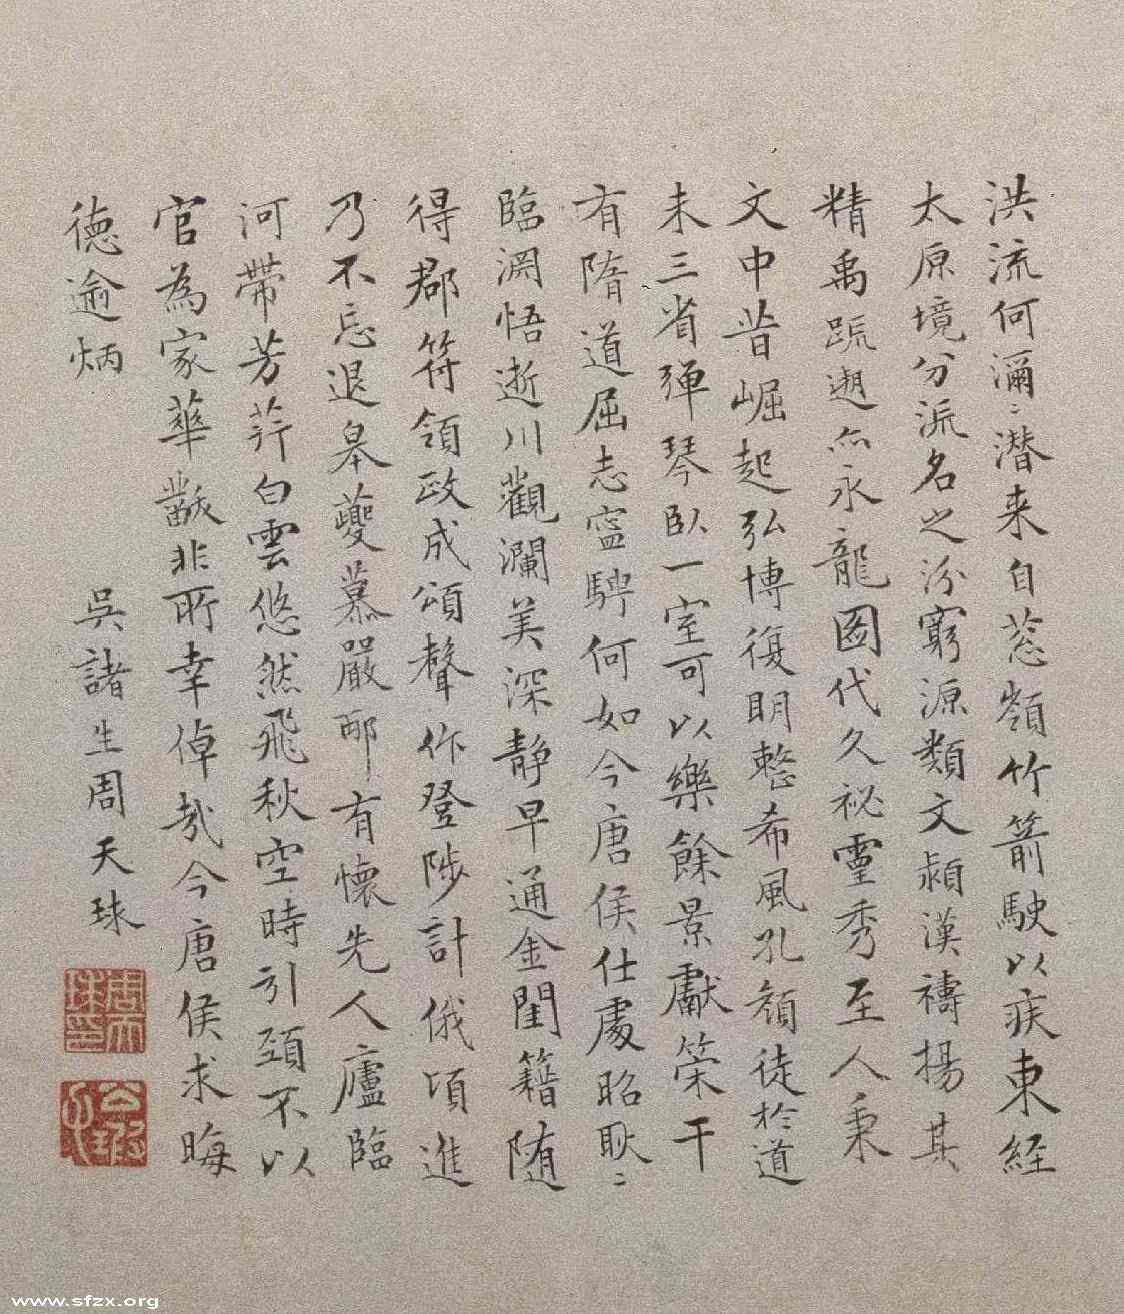 洪流何瀰〻潜来自葱嶺竹箭駛以疾東経
太原境分派名之汾窮源類文潁漢禱揚其
精禹跡邈亦永龍圖代久祕靈秀至人秉
文中昔崛起弘博復明整希風孔顔徒於道
未三省弾琴臥一室可以樂餘景獻策干
有隋道屈志寧騁何如今唐侯仕處昭耿〻
臨淵悟逝川觀瀾美深静早通金閨籍随
得郡符領政成頌聲作登陟計俄頃進
乃不忘退皋夔慕嚴邴有懐先人廬臨
河帶芳荇白雲悠然飛秋空時引頚不以
官為家華黻非所幸倬哉今唐侯求晦
徳逾炳
吳諸生周天球
周天球印
公瑕氏
www.sfzx.org